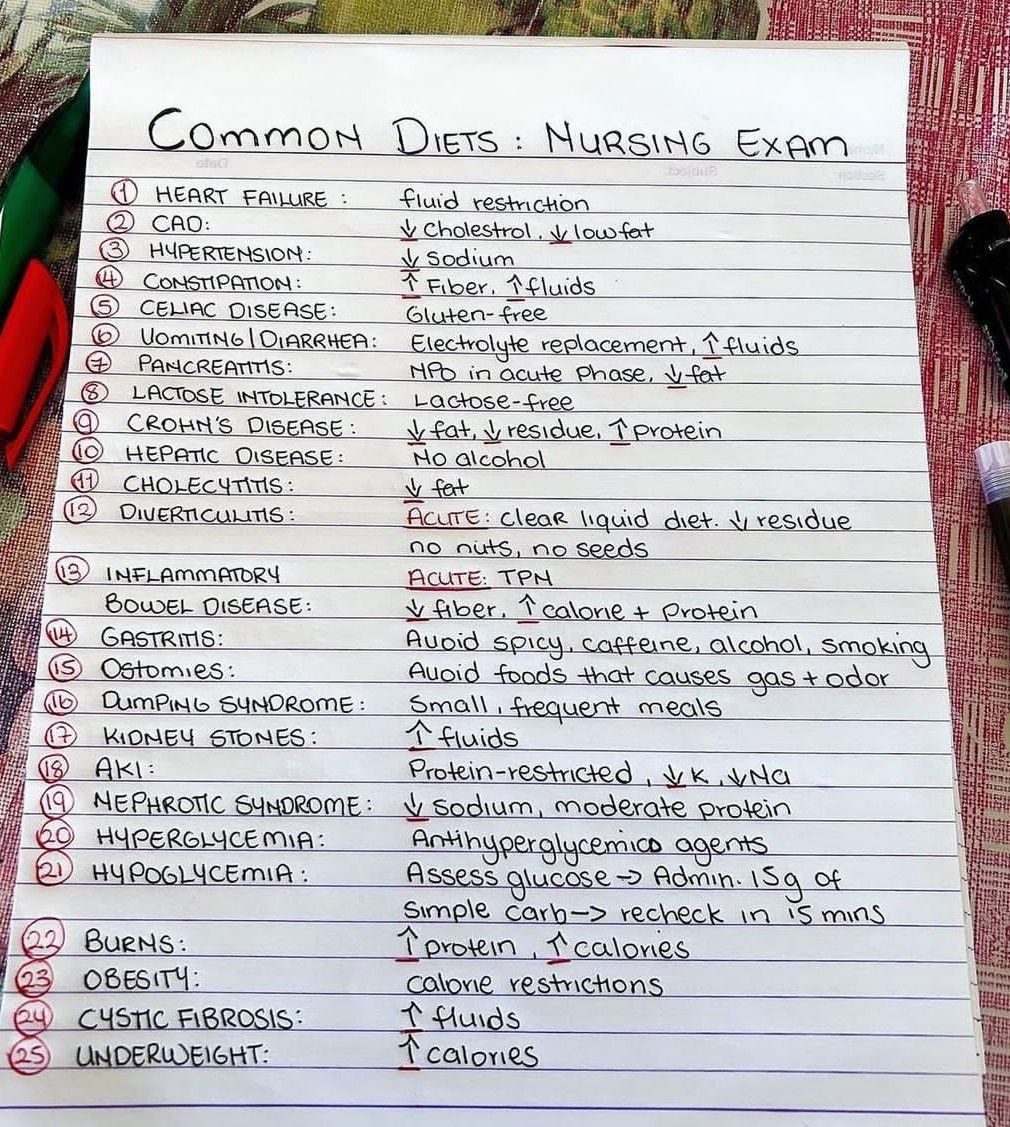 COMMON DIETS: NURSING EXAM
Name
Date
Subject
Section
① HEART FAILURE: fluid restriction
② CAD: ↓ Cholestrol, ↓ low fat
③ HYPERTENSION: ↓ Sodium
④ CONSTIPATION: ↑ Fiber, ↑ fluids
⑤ CELIAC DISEASE: Gluten-free
⑥ VOMITING/DIARRHEA: Electrolyte replacement, ↑ fluids
⑦ PANCREATITIS: NPO in acute phase, ↓ fat
⑧ LACTOSE INTOLERANCE: Lactose-free
⑨ CROHN'S DISEASE: ↓ fat, ↓ residue, ↑ protein
⑩ HEPATIC DISEASE: No alcohol
⑪ CHOLECYTITIS: ↓ fat
⑫ DIVERTICULITIS: ACUTE: clear liquid diet. ↓ residue
no nuts, no seeds
⑬ INFLAMMATORY ACUTE: TPN
BOWEL DISEASE: ↓ fiber, ↑ calorie + protein
⑭ GASTRITIS: Avoid spicy, caffeine, alcohol, smoking
⑮ Ostomies: Avoid foods that causes gas + odor
⑯ DUMPING SYNDROME: Small, frequent meals
⑰ KIDNEY STONES: ↑ fluids
⑱ AKI: Protein-restricted, ↓ K, ↓ Na
⑲ NEPHROTIC SYNDROME: ↓ sodium, moderate protein
⑳ HYPERGLYCEMIA: Antihyperglycemico agents
㉑ HYPOGLYCEMIA: Assess glucose → Admin. 15g of
simple carb → recheck in 15 mins
㉒ BURNS: ↑ protein, ↑ calories
㉓ OBESITY: calorie restrictions
㉔ CYSTIC FIBROSIS: ↑ fluids
㉕ UNDERWEIGHT: ↑ calories